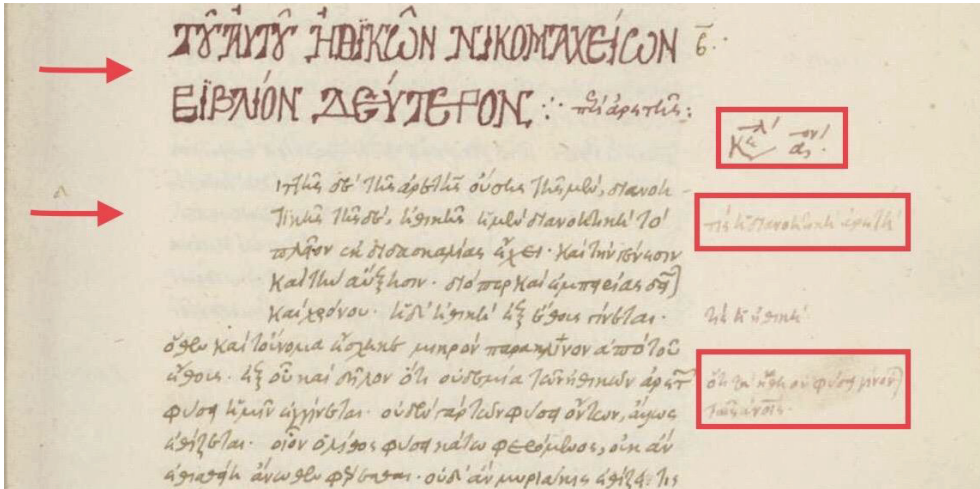 ΤΟΥ ΑΥΤΟΥ ΗΘΙΚΩΝ ΝΙΚΟΜΑΧΕΙΩΝ
ΒΙΒΛΙΟΝ ΔΕΥΤΕΡΟΝ: περὶ ἀρετῆς:
ιττῆς δὲ τῆς ἀρετῆς οὔσης τῆς μὲν, διανοη-
τικῆς τῆς δὲ, ἠθικῆς ἡ μὲν διανοητικὴ τὸ
πλεῖον ἐκ διδασκαλίας ἔχει· καὶ τὴν γένεσιν
καὶ τὴν αὔξησιν· διόπερ καὶ ἐμπειρίας δεῖ
καὶ χρόνου· ἡ δ' ἠθικὴ ἐξ ἔθους γίνεται·
ὅθεν καὶ τοὔνομα ἔσχηκε μικρὸν παρακλῖνον ἀπὸ τοῦ
ἔθους· ἐξ οὗ καὶ δῆλον ὅτι οὐδεμία τῶν ἠθικῶν ἀρετ
φύσει ἡμῖν ἐγγίνεται· οὐδὲν γὰρ τῶν φύσει ὄντων, ἄλλως
ἐθίζεται· οἷον ὁ λίθος φύσει κάτω φερόμενος, οὐκ ἂν
ἐθισθείη ἄνω φέρεσθαι· οὐδ' ἂν μυριάκις ἐθίζῃ τις
τίς ἡ διανοητικὴ ἀρετή
τίς ἡ ἠθική